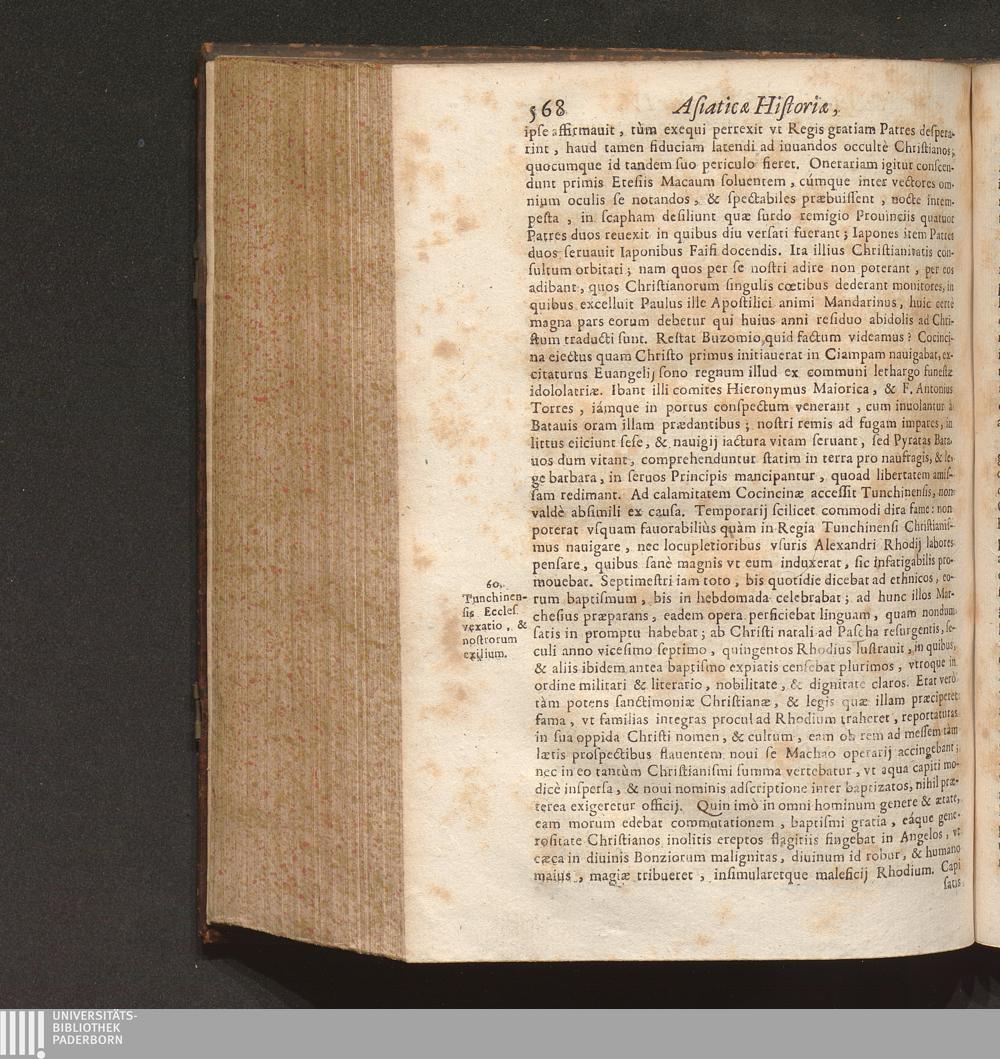 568 Aſiaticæ Hiſtoriæ,
ipſe affirmauit, tùm exequi perrexit vt Regis gratiam Patres deſpera-
rint, haud tamen fiduciam latendi ad iuuandos occultè Chriſtianos;
quocumque id tandem ſuo periculo fieret. Onerariam igitur conſcen-
dunt primis Eteſiis Macaum ſoluentem, cúmque inter vectores om-
nium oculis ſe notandos, & ſpectabiles præbuiſſent, nocte intem-
peſta, in ſcapham deſiliunt quæ ſurdo remigio Prouinciis quatuor
Patres duos reuexit in quibus diu verſati fuerant; Iapones item Patres
duos ſeruauit Iaponibus Faifi docendis. Ita illius Chriſtianitatis con-
ſultum orbitati; nam quos per ſe noſtri adire non poterant, per eos
adibant, quos Chriſtianorum ſingulis cœtibus dederant monitores, in
quibus excelluit Paulus ille Apoſtilici animi Mandarinus, huic certè
magna pars eorum debetur qui huius anni reſiduo abidolis ad Chri-
ſtum traducti ſunt. Reſtat Buzomio quid factum videamus? Cocinci-
na eiectus quam Chriſto primus initiauerat in Ciampam nauigabat, ex-
citaturus Euangelij ſono regnum illud ex communi lethargo funeſtæ
idololatriæ. Ibant illi comites Hieronymus Maiorica, & F. Antonius
Torres, iámque in portus conſpectum venerant, cum inuolantur à
Batauis oram illam prædantibus; noſtri remis ad fugam impares, in
littus eiiciunt ſeſe, & nauigij iactura vitam ſeruant, ſed Pyratas Bata-
uos dum vitant, comprehenduntur ſtatim in terra pro naufragis, & le-
ge barbara, in ſeruos Principis mancipantur, quoad libertatem amiſ-
ſam redimant. Ad calamitatem Cocincinæ acceſſit Tunchinenſis, non
valdè abſimili ex cauſa. Temporarij ſcilicet commodi dira fame: non
poterat vſquam fauorabiliùs quàm in Regia Tunchinenſi Chriſtianiſ-
mus nauigare, nec locupletioribus vſuris Alexandri Rhodij labores
penſare, quibus ſanè magnis vt eum induxerat, ſic infatigabilis pro-
mouebat. Septimeſtri iam toto, bis quotidie dicebat ad ethnicos, eo-
rum baptiſmum, bis in hebdomada celebrabat; ad hunc illos Mar-
cheſius præparans, eadem opera perficiebat linguam, quam nondum
ſatis in promptu habebat; ab Chriſti natali ad Paſcha reſurgentis, ſe-
culi anno viceſimo ſeptimo, quingentos Rhodius luſtrauit, in quibus,
& aliis ibidem antea baptiſmo expiatis cenſebat plurimos, vtroque in
ordine militari & literario, nobilitate, & dignitate claros. Erat verò
tàm potens ſanctimoniæ Chriſtianæ, & legis quæ illam præciperet
fama, vt familias integras procul ad Rhodium traheret, reportaturas
in ſua oppida Chriſti nomen, & cultum, eam ob rem ad meſſem tàm
lætis proſpectibus flauentem noui ſe Machao operarij accingebant;
nec in eo tantùm Chriſtianiſmi ſumma vertebatur, vt aqua capiti mo-
dicè inſperſa, & noui nominis adſcriptione inter baptizatos, nihil præ-
terea exigeretur officij. Quin imò in omni hominum genere & ætate,
eam morum edebat commutationem, baptiſmi gratia, eáque gene-
roſitate Chriſtianos inolitis ereptos flagitiis fingebat in Angelos, vt
cæca in diuinis Bonziorum malignitas, diuinum id robur, & humano
maius, magiæ tribueret, inſimularetque maleficij Rhodium. Capi
ſatis
60.
Tunchinen-
ſis Eccleſ.
vexatio, &
noſtrorum
exilium.
UNIVERSITÄTS-
BIBLIOTHEK
PADERBORN